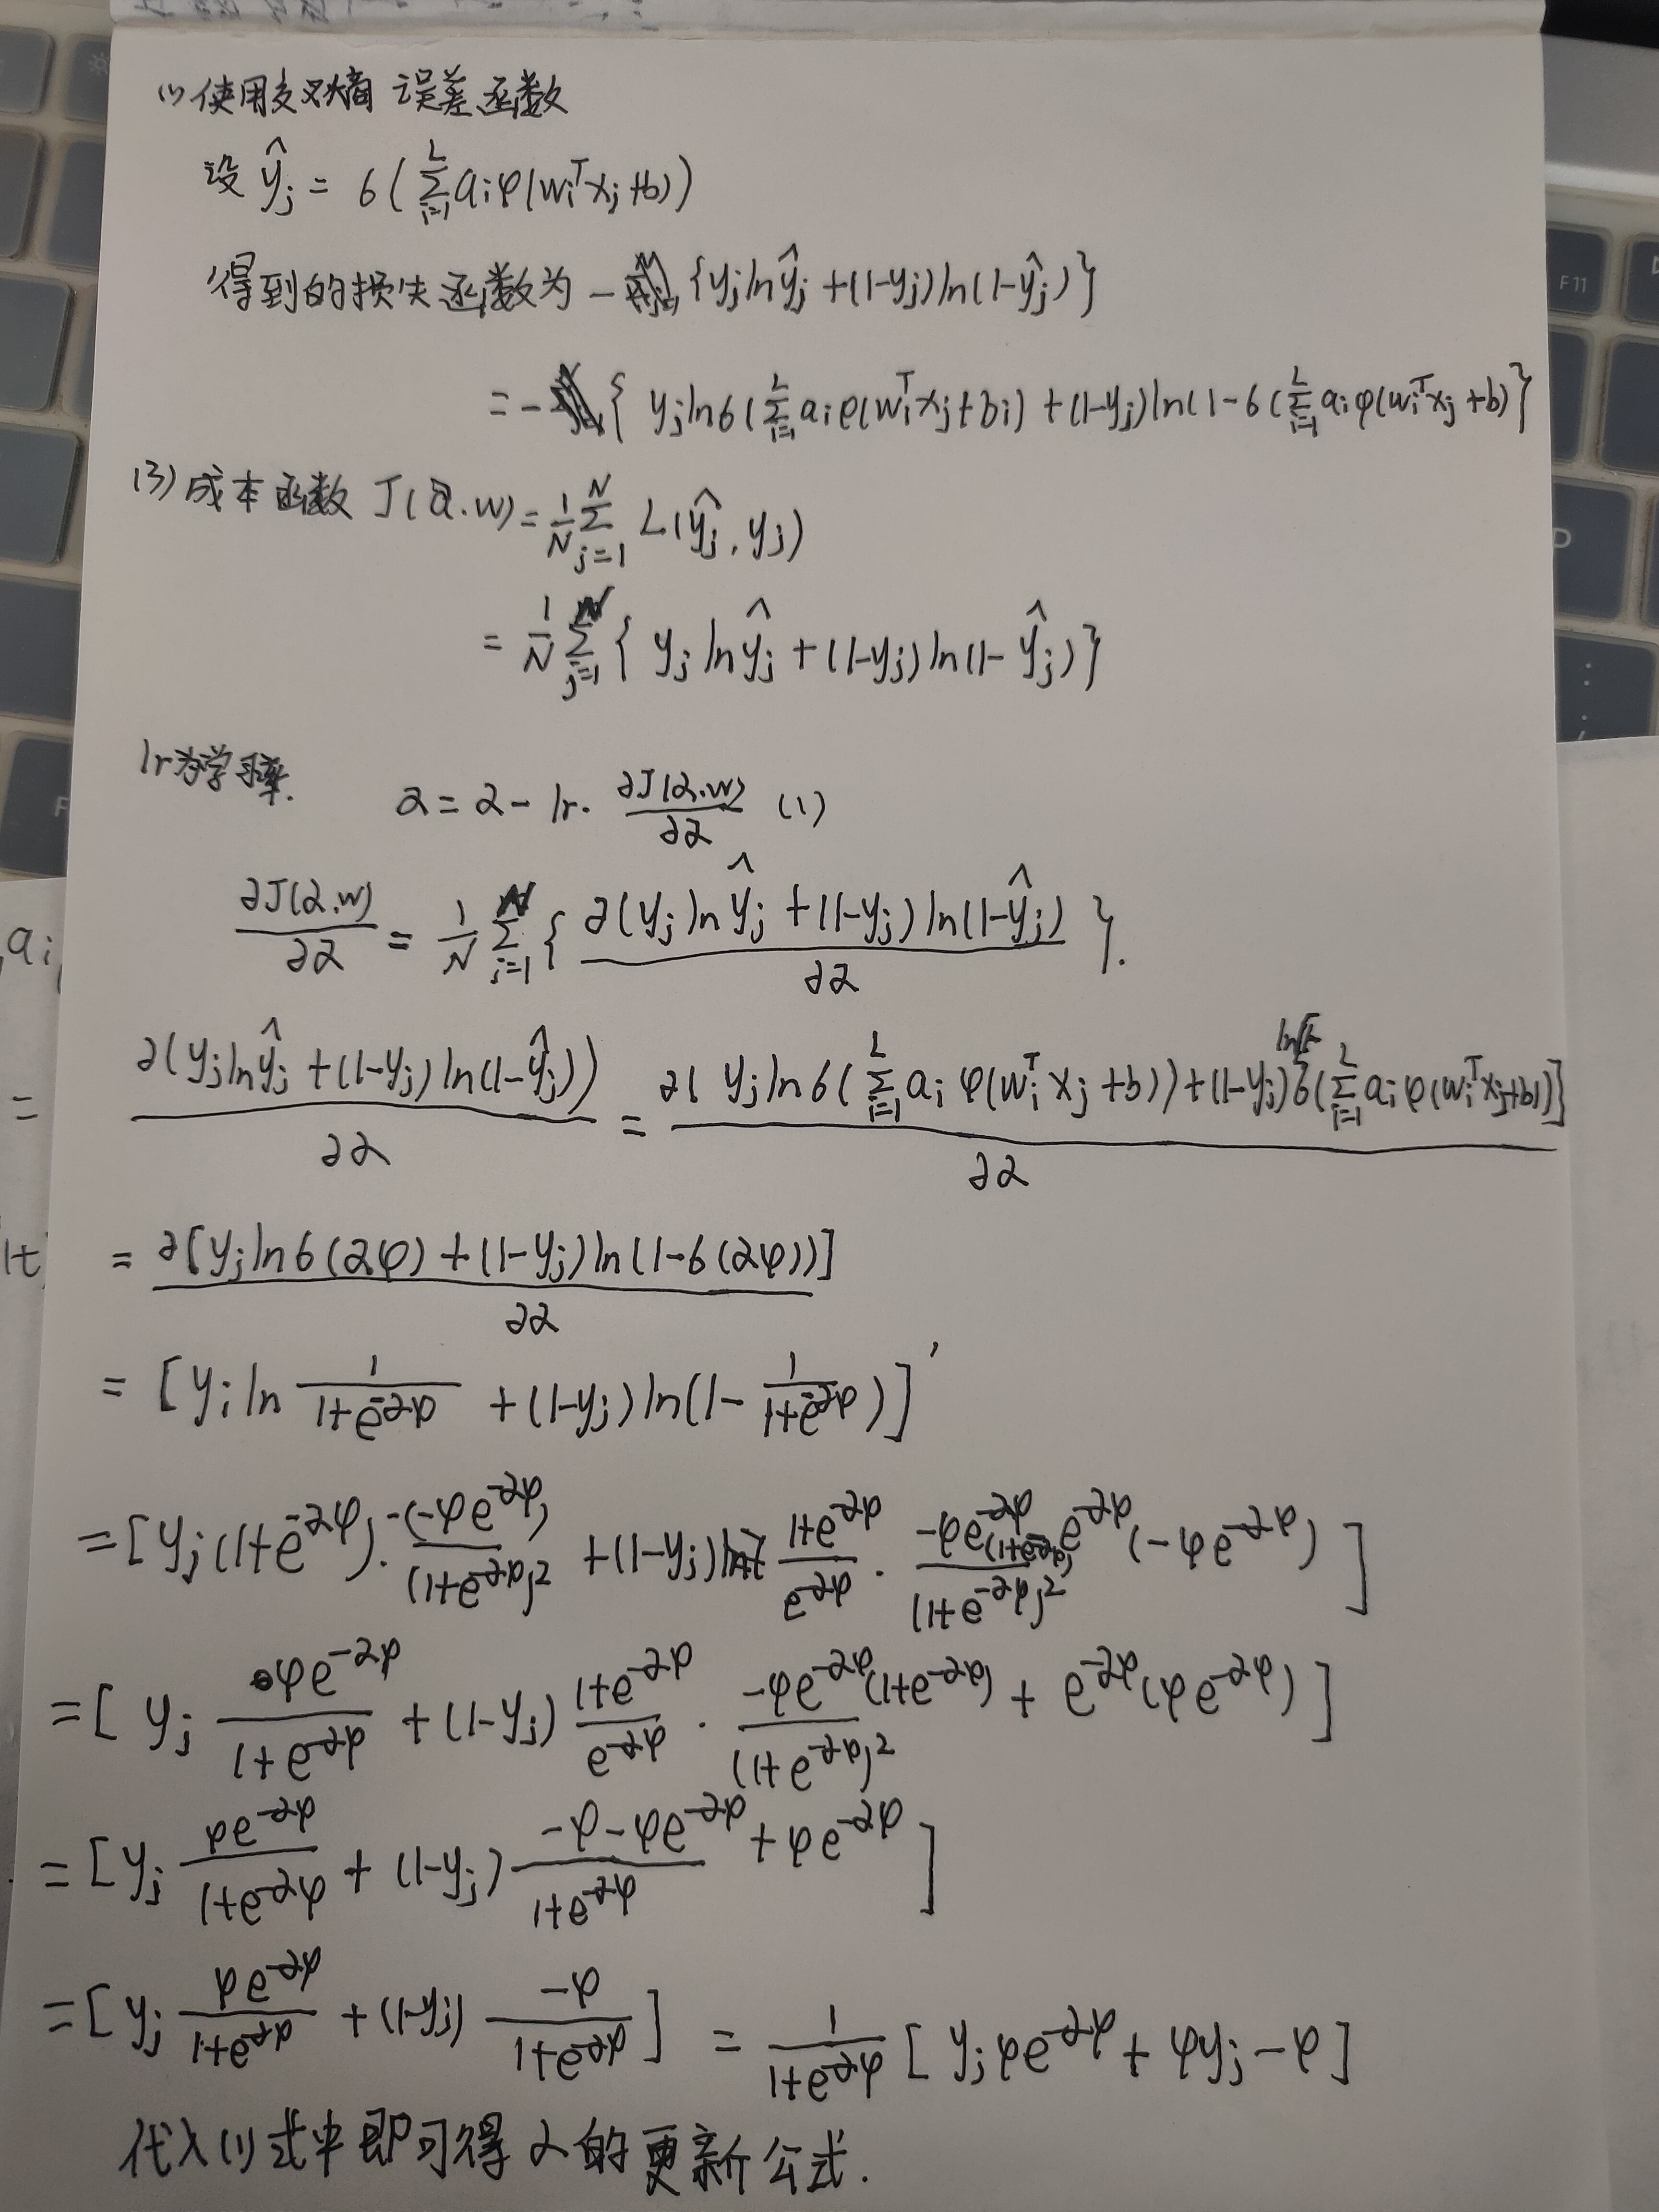 (1) 使用交叉熵 误差函数
设 ŷj = 6 ( Σ_{i=1}^{L} aiφ(wi^T xj+b))
得到的损失函数为 − {yjlnŷj +(1-yj)ln(1-ŷj)}
= − { yjln6 (Σ_{i=1}^{L} aiφ(wi^T xj+bi) +(1-yj)ln(1-6 (Σ_{i=1}^{L} aiφ(wi^T xj+b)}
(3) 成本函数 J(a.w) = 1/N Σ_{j=1}^{N} L(ŷj, yj)
= 1/N Σ_{j=1}^{N} { yj lnŷj + (1-yj) ln(1- ŷj)}
lr为学习率. α = α − lr· ∂J(α.w)/∂α (1)
∂J(α.w)/∂α = 1/N Σ_{i=1}^{N} { ∂(yj ln ŷj +(1-yj) ln(1-ŷj)/∂α }.
= ∂(yjlnŷj +(1-yj) ln(1-ŷj))/∂α = ∂( yjln6 ( Σ_{i=1}^{L} ai φ(wi^T xj+b))+(1-yj) 6(Σ_{i=1}^{L} ai φ(wi^T xj+b)]/∂α
= ∂[yjln6(αφ) +(1-yj)ln(1-6(αφ))]/∂α
= [yi ln 1/(1+e^{-αφ}) +(1-yj)ln(1- 1/(1+e^{-αφ}))]'
=[yj(1+e^{-αφ})· -(-φe^{-αφ})/(1+e^{-αφ})^2 +(1-yj) (1+e^{-αφ})/e^{-αφ} · -φe^{-αφ}(1+e^{-αφ}) e^{-αφ}(-φe^{-αφ})/(1+e^{-αφ})^2 ]
=[ yj φe^{-αφ}/(1+e^{-αφ}) +(1-yj) (1+e^{-αφ})/e^{-αφ} · -φe^{-αφ}(1+e^{-αφ}) + e^{-αφ}(φe^{-αφ})/(1+e^{-αφ})^2 ]
=[yj φe^{-αφ}/(1+e^{-αφ}) + (1-yj) -φ-φe^{-αφ}+φe^{-αφ}/(1+e^{-αφ}) ]
=[ yj φe^{-αφ}/(1+e^{-αφ}) +(1-yj) -φ/(1+e^{-αφ}) ] = 1/(1+e^{-αφ}) [ yjφe^{-αφ}+ φyj-φ ]
代入(1)式中即可得 α 的更新公式.
ai